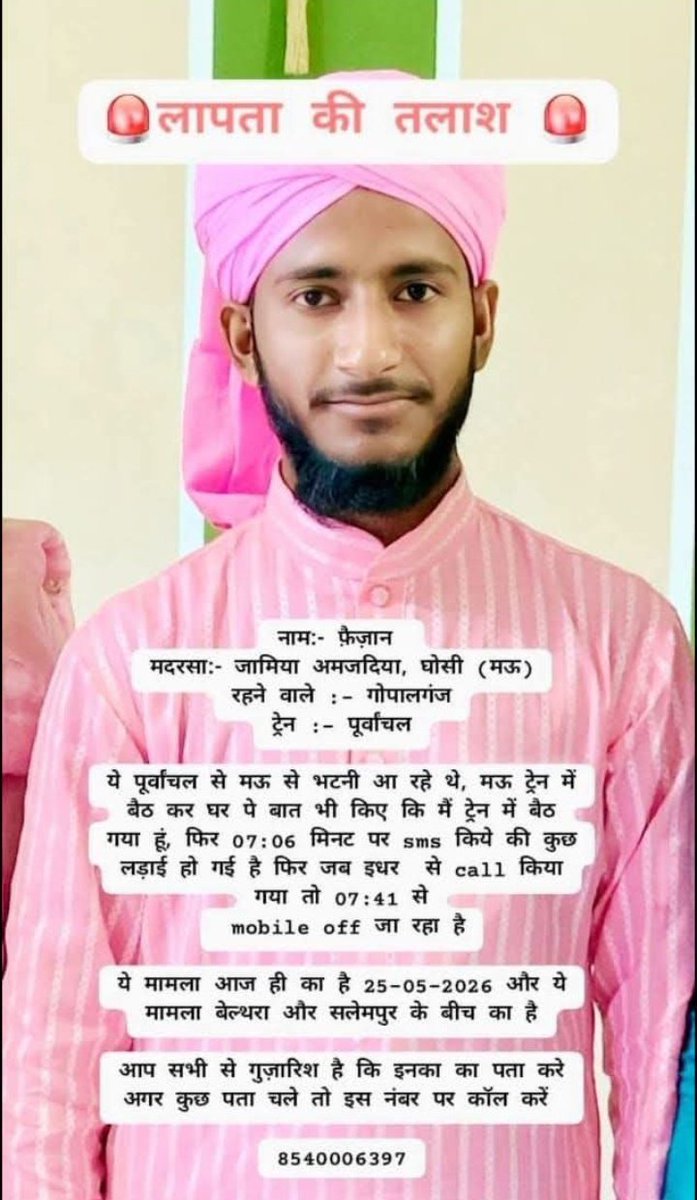 🚨लापता की तलाश 🚨
नाम:- फ़ैज़ान
मदरसा:- जामिया अमजदिया, घोसी (मऊ)
रहने वाले :- गोपालगंज
ट्रेन :- पूर्वांचल
ये पूर्वांचल से मऊ से भटनी आ रहे थे, मऊ ट्रेन में
बैठ कर घर पे बात भी किए कि मैं ट्रेन में बैठ
गया हूं, फिर 07:06 मिनट पर sms किये की कुछ
लड़ाई हो गई है फिर जब इधर से call किया
गया तो 07:41 से
mobile off जा रहा है
ये मामला आज ही का है 25-05-2026 और ये
मामला बेल्थरा और सलेमपुर के बीच का है
आप सभी से गुज़ारिश है कि इनका का पता करे
अगर कुछ पता चले तो इस नंबर पर कॉल करें
8540006397